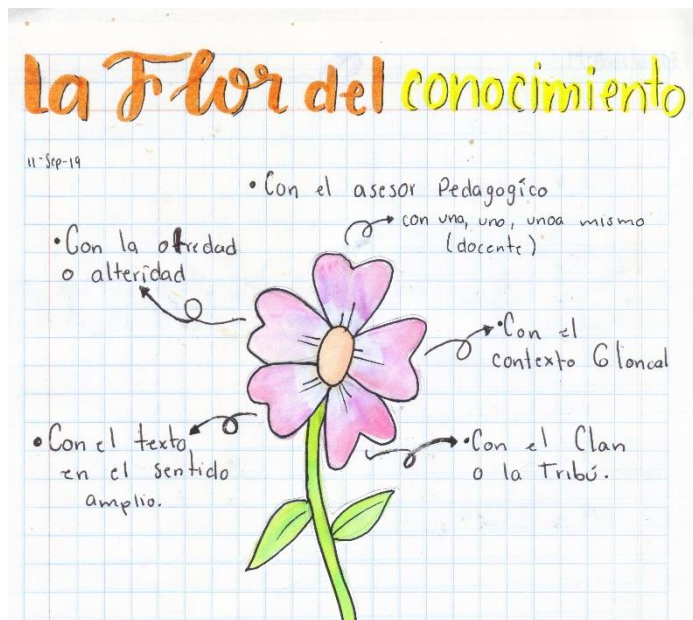 La Flor del conocimiento
11-Sep-19
• Con el asesor Pedagogíco
con una, uno, unoa mismo
(docente)
• Con la otredad
o alteridad
• Con el
contexto Gloncal
• Con el texto
en el sentido
amplio.
• Con el Clan
o la Tribú.